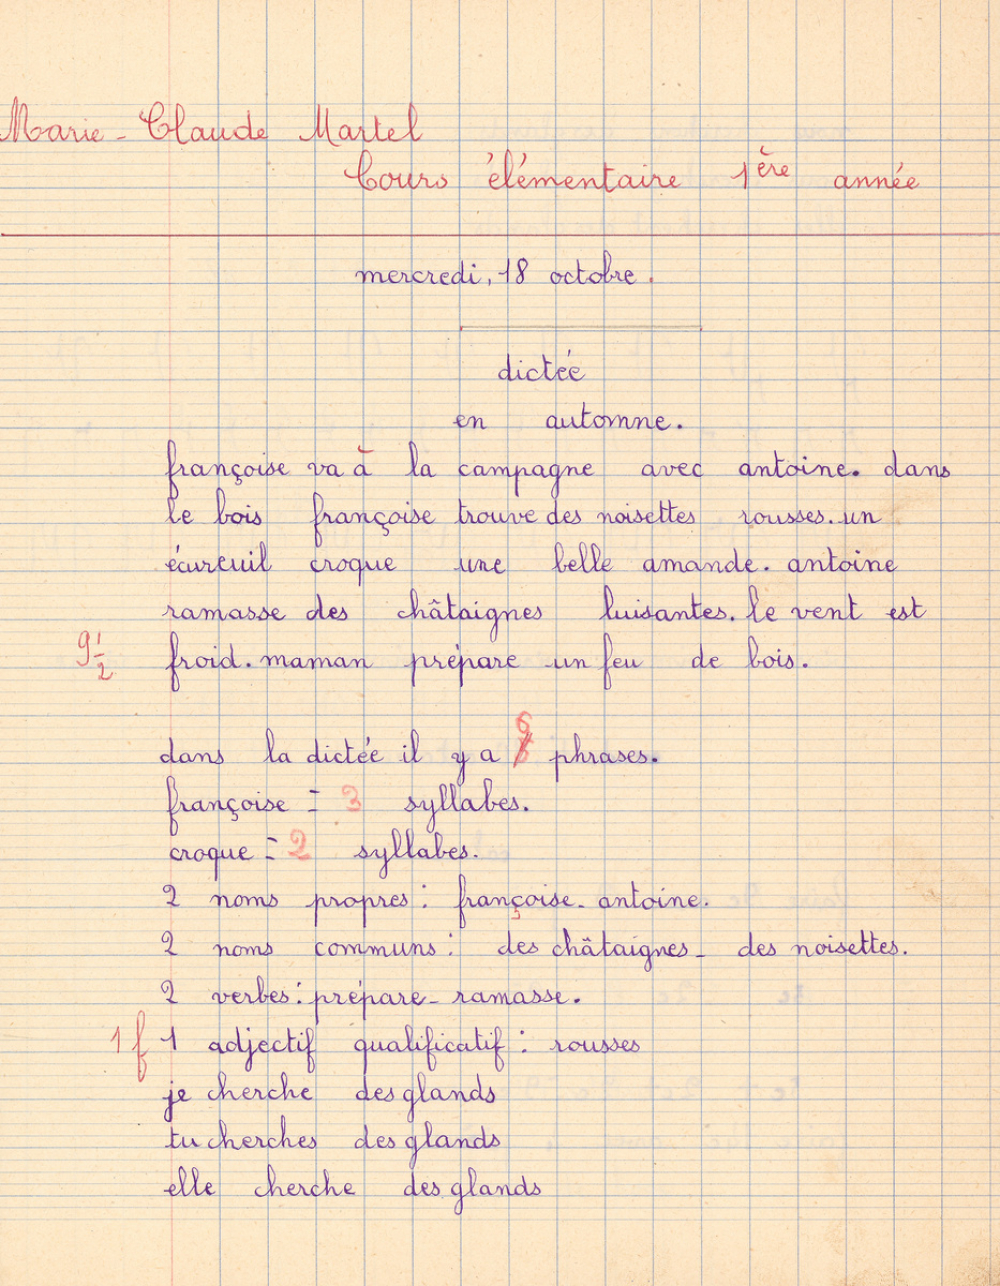 Marie-Claude Martel
Cours élémentaire 1ère année
mercredi, 18 octobre.
dictée
en automne.
françoise va à la campagne avec antoine. dans
le bois françoise trouve des noisettes rousses. un
écureuil croque une belle amande. antoine
ramasse des châtaignes luisantes. le vent est
9 1/2 froid. maman prépare un feu de bois.
dans la dictée il y a 6 phrases.
françoise = 3 syllabes.
croque = 2 syllabes.
2 noms propres : françoise - antoine.
2 noms communs : des châtaignes - des noisettes.
2 verbes : prépare - ramasse.
1 f 1 adjectif qualificatif : rousses
je cherche des glands
tu cherches des glands
elle cherche des glands